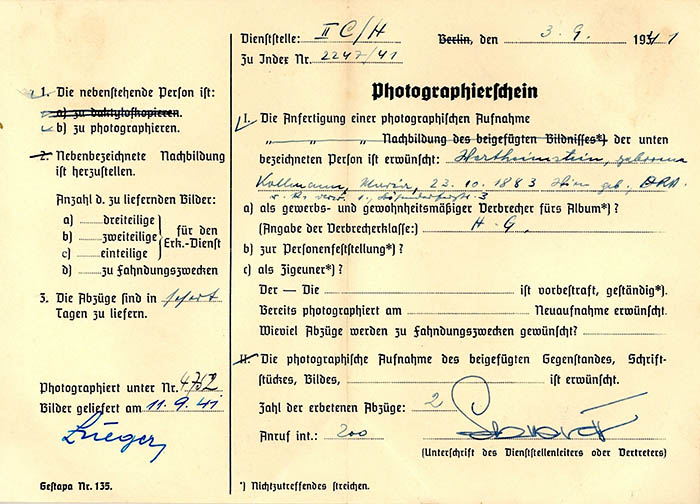 1. Die nebenstehende Person ist:
a) zu daktyloskopieren.
b) zu photographieren.
2. Nebenbezeichnete Nachbildung
ist herzustellen.
Anzahl d. zu liefernden Bilder:
a) ........ dreiteilige
b) ........ zweiteilige
c) ........ einteilige
für den
Erk.-Dienst
d) ........ zu Fahndungszwecken
3. Die Abzüge sind in sofort
Tagen zu liefern.
Photographiert unter Nr. 4752
Bilder geliefert am 11.9.41
Gestapa Nr. 135.
Dienststelle: II C/H
Berlin, den 3. 9. 1941
Zu Index Nr. 2247/41
Photographierschein
I. Die Anfertigung einer photographischen Aufnahme
„ „ „ Nachbildung des beigefügten Bildnisses*) der unten
bezeichneten Person ist erwünscht: Wertheimstein, geborene
Kollmann, Maria, 23.10.1883 Wien geb., DRA.
a) als gewerbs- und gewohnheitsmäßiger Verbrecher fürs Album*)?
(Angabe der Verbrecherklasse:) H.G.
b) zur Personenfeststellung*)?
c) als Zigeuner*)?
Der — Die ........ ist vorbestraft, geständig*).
Bereits photographiert am ........ Neuaufnahme erwünscht.
Wieviel Abzüge werden zu Fahndungszwecken gewünscht? ........
II. Die photographische Aufnahme des beigefügten Gegenstandes, Schrift-
stückes, Bildes, ........ ist erwünscht.
Zahl der erbetenen Abzüge: 2
Anruf int.: 200
(Unterschrift des Dienststellenleiters oder Vertreters)
*) Nichtzutreffendes streichen.